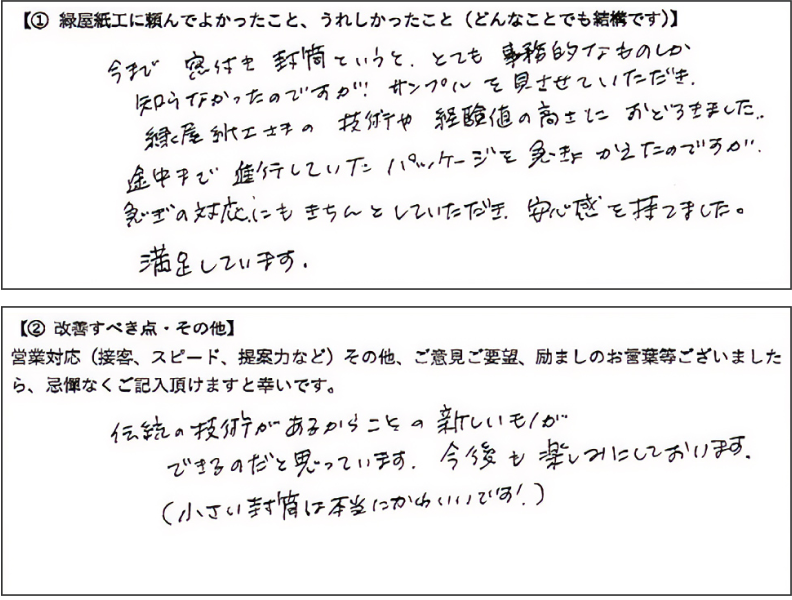 【① 緑屋紙工に頼んでよかったこと、うれしかったこと（どんなことでも結構です）】
今まで 窓付き 封筒というと、とても 事務的なものしか
知らなかったのですが、サンプル を見させていただき、
緑屋紙工さまの 技術や 経験値の高さに おどろきました。
途中まで 進行していた パッケージを 急きょ かえたのですが、
急ぎの対応にも きちんとしていただき、安心感を持てました。
満足しています。
【② 改善すべき点・その他】
営業対応（接客、スピード、提案力など）その他、ご意見ご要望、励ましのお言葉等ございました
ら、忌憚なくご記入頂けますと幸いです。
伝統の技術があるからことの 新しいモノが
できるのだと思っています。今後も 楽しみにしております。
（小さい封筒は本当にかわいいです！）